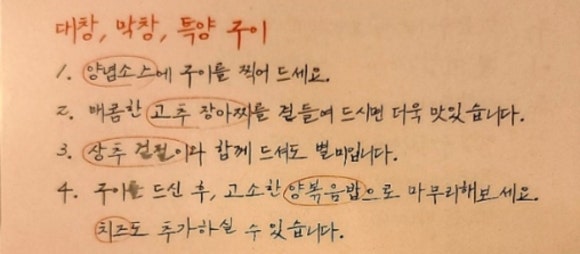 대창, 막창, 특양 구이
1. 양념소스에 구이를 찍어 드세요.
2. 매콤한 고추 장아찌를 곁들여 드시면 더욱 맛있습니다.
3. 상추 겉절이와 함께 드셔도 별미입니다.
4. 구이를 드신 후, 고소한 양볶음밥으로 마무리해보세요.
치즈도 추가하실 수 있습니다.